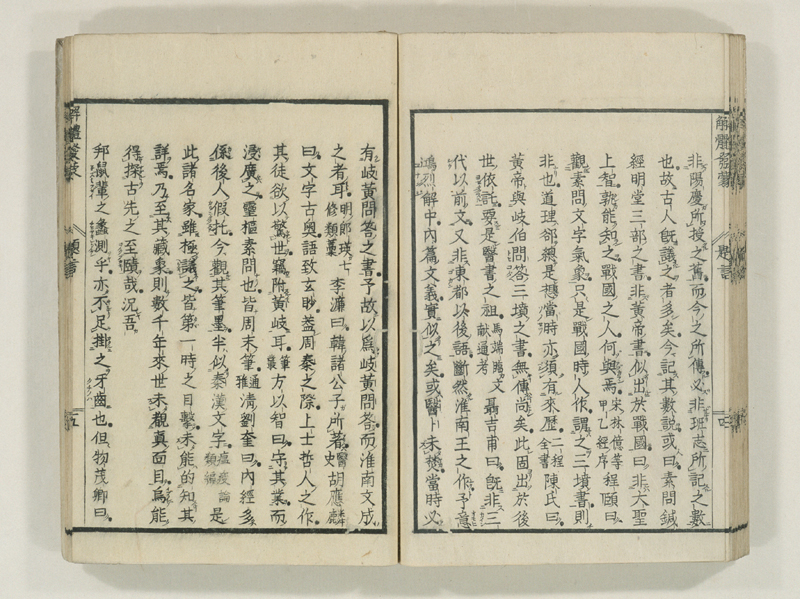 非陽慶所授之舊而今之所傳必非班志所記之數
也故古人旣議之者多矣今記其數說或曰素問鍼
經明堂三部之書非黃帝書似出於戰國曰非大聖
上智孰能知之戰國之人何與焉宋林億等甲乙經序程頤曰
觀素問文字氣象只是戰國時人作謂之三墳書則
非也道理卻總是想當時亦須有來歷二程全書陳氏曰
黃帝與岐伯問答三墳之書無傳尚矣此固出於後
世依託要是醫書之祖馬端臨文献通考聶吉甫曰旣非三
代以前文又非東都以後語斷然淮南王之作予意
鴻烈解中內篇文義實似之矣或醫卜未焚當時必
有岐黃問答之書予故以爲岐黃問答而淮南文成
之者耳明郎瑛七修類藁李濂曰韓諸公子所著醫史胡應麟
曰文字古奧語致玄眇蓋周秦之際上士哲人之作
其徒欲以驚世竊附黃岐耳筆叢方以智曰守其業而
浸廣之靈樞素問也皆周末筆通雅清劉奎曰內經多
係後人假托今觀其筆墨半似秦漢文字瘟疫論類編是
此諸名家雖極議之皆第一時之目擊未能的知其
詳焉乃至其藏象則數千年來世未覩眞面目烏能
得探古先之至賾哉況吾
邦鼠輩之蠡測乎亦不足掛之牙齒也但物茂卿曰
解體發蒙
題言
四
解體發蒙
題言
五